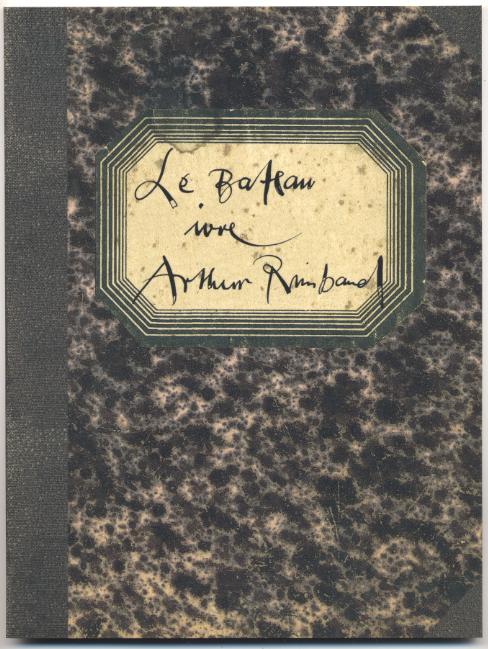 Le Bateau
ivre
Arthur Rimbaud